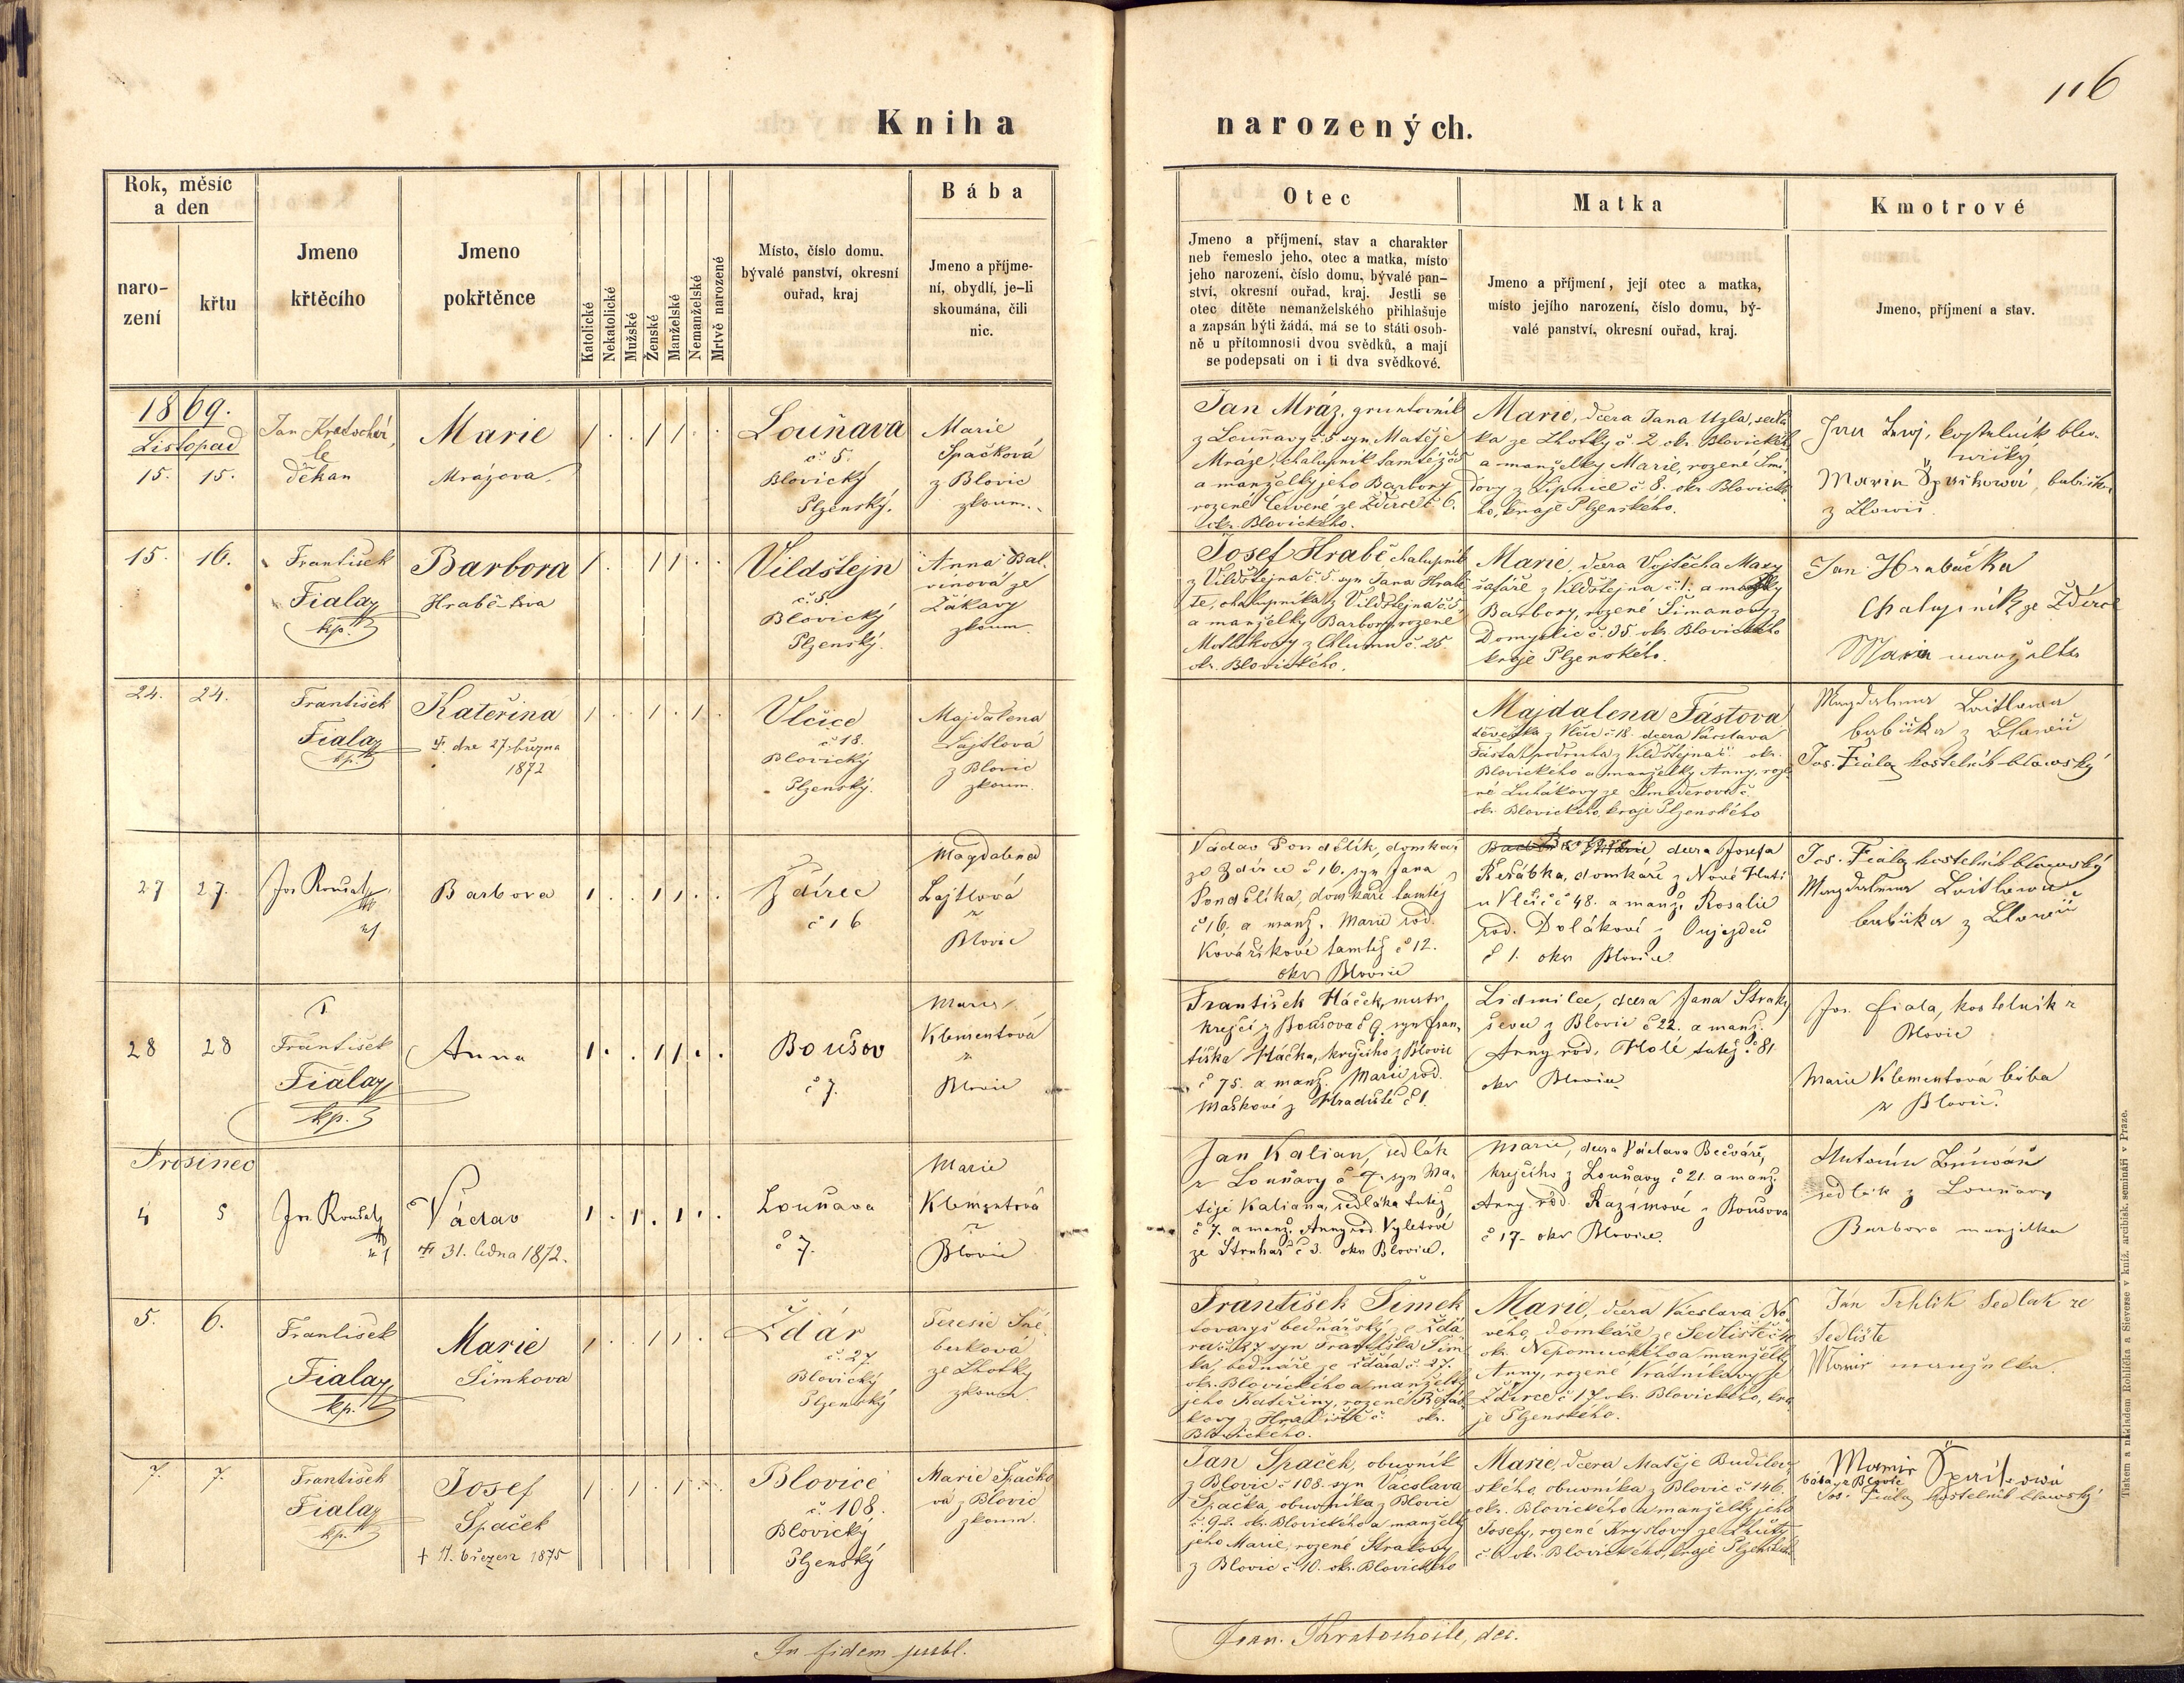 116
Kniha narozených.
Rok, měsíc
a den
naro-
zení
křtu
Jmeno
křtěcího
Jmeno
pokřtěnce
Katolické
Nekatolické
Mužské
Ženské
Manželské
Nemanželské
Mrtvě narozené
Místo, číslo domu,
bývalé panství, okresní
ouřad, kraj
Bába
Jmeno a příjme-
ní, obydlí, je-li
skoumána, čili
nic.
Otec
Jmeno a příjmení, stav a charakter
neb řemeslo jeho, otec a matka, místo
jeho narození, číslo domu, bývalé pan-
ství, okresní ouřad, kraj. Jestli se
otec dítěte nemanželského přihlašuje
a zapsán býti žádá, má se to státi osob-
ně u přítomnosti dvou svědků, a mají
se podepsati on i ti dva svědkové.
Matka
Jmeno a příjmení, její otec a matka,
místo jejího narození, číslo domu, bý-
valé panství, okresní ouřad, kraj.
Kmotrové
Jmeno, příjmení a stav.
1869.
Listopad
15. 15.
děkan
Marie
Mrázova
Louňava
č 5.
Blovický
Plzenský.
Marie
Špačková
z Blovic
zkoum.
Jan Mráz, gruntovník
z Louňavy č. 5. syn Matěje
Mráze, chalupník tamtéž
a manželky jeho Barbory
rozené Červené ze Ždírce č. 6.
okr. Blovického.
Marie, dcera Jana Uzla, sedlá
ka ze Lhotky č. 2 okr. Blovického
a manželky Marie, rozené
z Lipnice č 8. okr. Blovické
ho, kraje Plzenského.
kostelník
Maria Špačkowá, babička
15. 16.
František
Fiala
kp.
Barbora
Hrabě-tova
Vildštejn
č. 5.
Blovický
Plzenský.
Anna Bal-
vínová ze
Žákavy
zkoum.
Josef Hrabě chalupník
z Vildštejna č. 5. syn Jana Hrabě
te, chalupníka z Vildštejna č. 5.
a manželky Barbory, rozené
z Chlumu č. 25.
okr. Blovického.
Marie, dcera Vojtěcha
šafáře z Vildštejna č. 1. a manželky
Barbory, rozené Šimanovy z
Domyslic č. 35. okr. Blovického
kraje Plzenského.
Jan Hrabačka
Chalupník ze Ždírce
Maria manželka
24. 24.
František
Fiala
kp.
Kateřina
† dne 27. března
1872
Vlčice
č 18.
Blovický
Plzenský.
Majdalena
Lajtlová
z Blovic
zkoum.
Majdalena Fástova
děvečka z Vlčic č 18. dcera Václava
Fásta, podruha z Vildštejna č. okr.
Blovického a manželky Anny, roze
né
okr. Blovického, kraje Plzenského
Magdalena Laitlowa
babička z Blowic
Jos. Fiala kostelník blowský
27 27.
Jos. Roušal
Barbora
Ždírec
č 16
Magdalena
Lajtlová
z
Blovic
Václav Pondělík, domkář
ze Ždírce č 16. syn Jana
Pondělíka, domkáře tamtéž
č 16. a manž. Marie rod.
Kovaříkové tamtéž č 12.
okr Blovic
dcera Josefa
Řeřábka, domkáře z Nové Huti
u Vlčic č 48. a manž. Rosalie
rod. Dolákové z Oujezdců
č 1. okr Blovic.
Jos. Fiala kostelník blowský
Magdalena Laitlowa
babička z Blowic
28 28
František
Fiala
kp.
Anna
Boušov
č 7.
Marie
Klementová
z
Blovic
František Háček, mistr
krejčí z Boušova č 9. syn Fran-
tiška Háčka, krejčího z Blovic
č 75. a manž. Marie rod.
Maškové z Hradiště č 1.
Lidmila, dcera Jana
ševce z Blovic č 22. a manž.
Anny rod. Holé tutéž č 81
okr Blovic.
Jos. Fiala, kostelník z
Blovic
Marie Klementová bába
z Blovic.
Prosinec
4 5
Jos. Roušal
Václav
† 31. ledna 1872.
Louňava
č 7.
Marie
Klementová
z
Blovic
Jan Kalian, sedlák
z Louňavy č 7. syn Ma-
těje Kaliana, sedláka tutéž
č 7. a manž. Anny rod. Vyletové
ze Struhař č 3. okr Blovic.
Marie, dcera Václava Bečváře,
krejčího z Louňavy č 21. a manž.
Anny rod. Kazimové z Boušova
č 17. okr Blovic.
Antonín
sedlák z Louňavy
Barbora manželka
5. 6.
František
Fiala
kp.
Marie
Šimkova
Ždár
č. 27
Blovický
Plzenský
Teresie
berková
ze Lhotky
zkoum
František Šimek
tovaryš bednářský ze Ždá
ra č. 27 syn Františka Šim
ka, bednáře ze Ždára č. 27.
okr. Blovického a manželky
jeho Kateřiny, rozené Řeřáb
kovy z Hradiště č. okr.
Blovického.
Marie, dcera Václava No
vého, domkáře ze Sedliště č
okr. Nepomuckého a manželky
Anny, rozené Vrátníkovy ze
Ždírce č 17 okr. Blovického, kra
je Plzenského.
Jan Trhlík Sedlák ze
Sedliště
Marie manželka.
7. 7.
František
Fiala
kp.
Josef
Špaček
† 17. březen 1875
Blovice
č. 108.
Blovický
Plzenský
Marie Špačko
vá z Blovic
zkoum.
Jan Špaček, obuvník
z Blovic č 108. syn Václava
Špačka, obuvníka z Blovic
č. 92. okr. Blovického a manželky
jeho Marie, rozené Strakovy
z Blovic č 10. okr. Blovického
Marie, dcera Matěje Budilov
ského, obuvníka z Blovic č 146.
okr. Blovického a manželky jeho
Josefy, rozené Kryslovy ze Lhůty
č. 6 okr. Blovického, kraje Plzenského
Marie Špačkowá
bába z Blovic
Jos. Fiala kostelník blowský
In fidem publ.
Joan. Kratochvile, dec.
Tiskem a nákladem Rohlíčka a Sieverse v kníž. arcibisk. semináři v Praze.